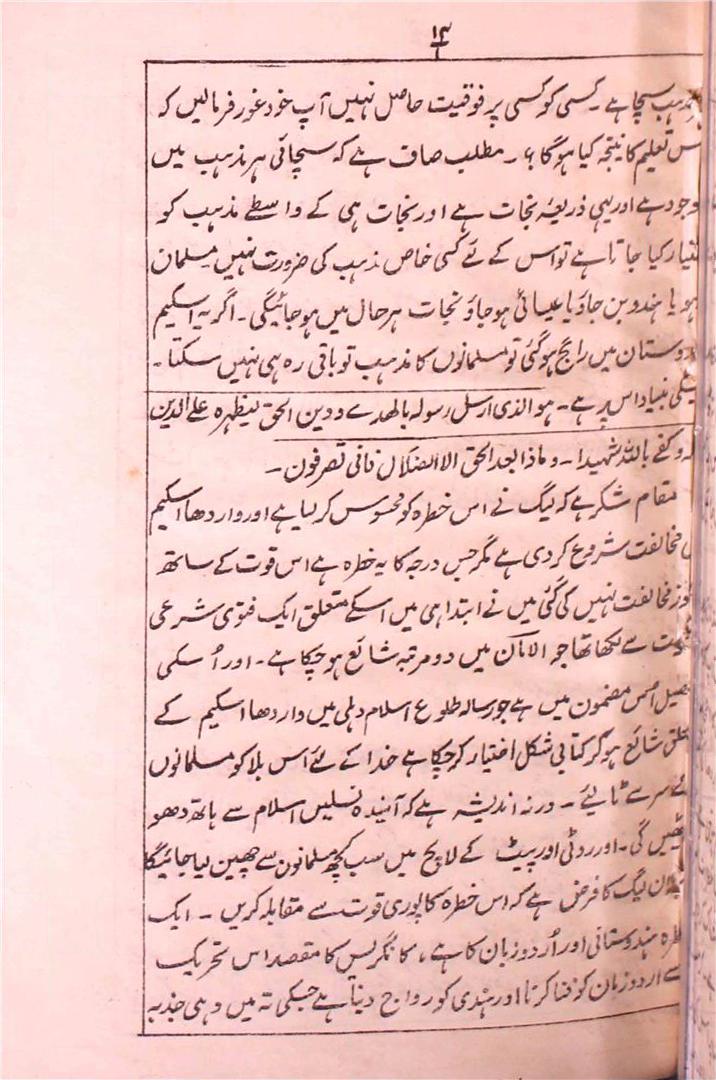 ۱۳
مذہب سچا ہے ۔ کسی کو کسی پر فوقیت حاصل نہیں آپ خود غور فرمالیں کہ
اس تعلیم کا نتیجہ کیا ہوگا ؟ ۔ مطلب صاف ہے کہ سچائی ہر مذہب میں
موجود ہے اور یہی ذریعہ نجات ہے اور نجات ہی کے واسطے مذہب کو
اختیار کیا جاتا ہے تو اس کے لئے کسی خاص مذہب کی ضرورت نہیں مسلمان
ہو یا ہندو بن جاؤ یا عیسائی ہو جاؤ نجات ہر حال میں ہو جائیگی ۔ اگر یہ اسکیم
ہندوستان میں رائج ہو گئی تو مسلمانوں کا مذہب تو باقی رہ ہی نہیں سکتا ۔
جسکی بنیاد اس پر ہے ۔ ہو الذی ارسل رسولہ بالھدے و دین الحق لیظھرہ علے الدین
کلہ و کفے باللہ شہیدا ۔ و ماذا بعد الحق الا الضلال فانی تصرفون ۔
مقام شکر ہے کہ لیگ نے اس خطرہ کو محسوس کر لیا ہے اور واردھا اسکیم
کی مخالفت شروع کر دی ہے مگر جس درجہ کا یہ خطرہ ہے اس قوت کے ساتھ
ہنوز مخالفت نہیں کی گئی میں نے ابتدا ہی میں اسکے متعلق ایک فتوی شرعی
حیثیت سے لکھا تھا جو الامان میں دو مرتبہ شائع ہو چکا ہے ۔ اور اُسکی
تفصیل اس مضمون میں ہے جو رسالہ طلوع اسلام دہلی میں واردھا اسکیم کے
متعلق شائع ہو کر کتابی شکل اختیار کر چکا ہے خدا کے لئے اس بلا کو مسلمانوں
کے سر سے ٹالیئے ۔ ورنہ اندیشہ ہے کہ آیندہ نسلیں اسلام سے ہاتھ دھو
بیٹھیں گی ۔ اور روٹی اور پیٹ کے لالچ میں سب کچھ مسلمانوں سے چھین لیا جائیگا
لیگ کا فرض ہے کہ اس خطرہ کا پوری قوت سے مقابلہ کریں ۔ ایک
خطرہ ہندوستانی اور اُردو زبان کا ہے ، کانگریس کا مقصد اس تحریک
سے اردو زبان کو فنا کرنا اور ہندی کو رواج دینا ہے جسکی تہ میں وہی جذبہ